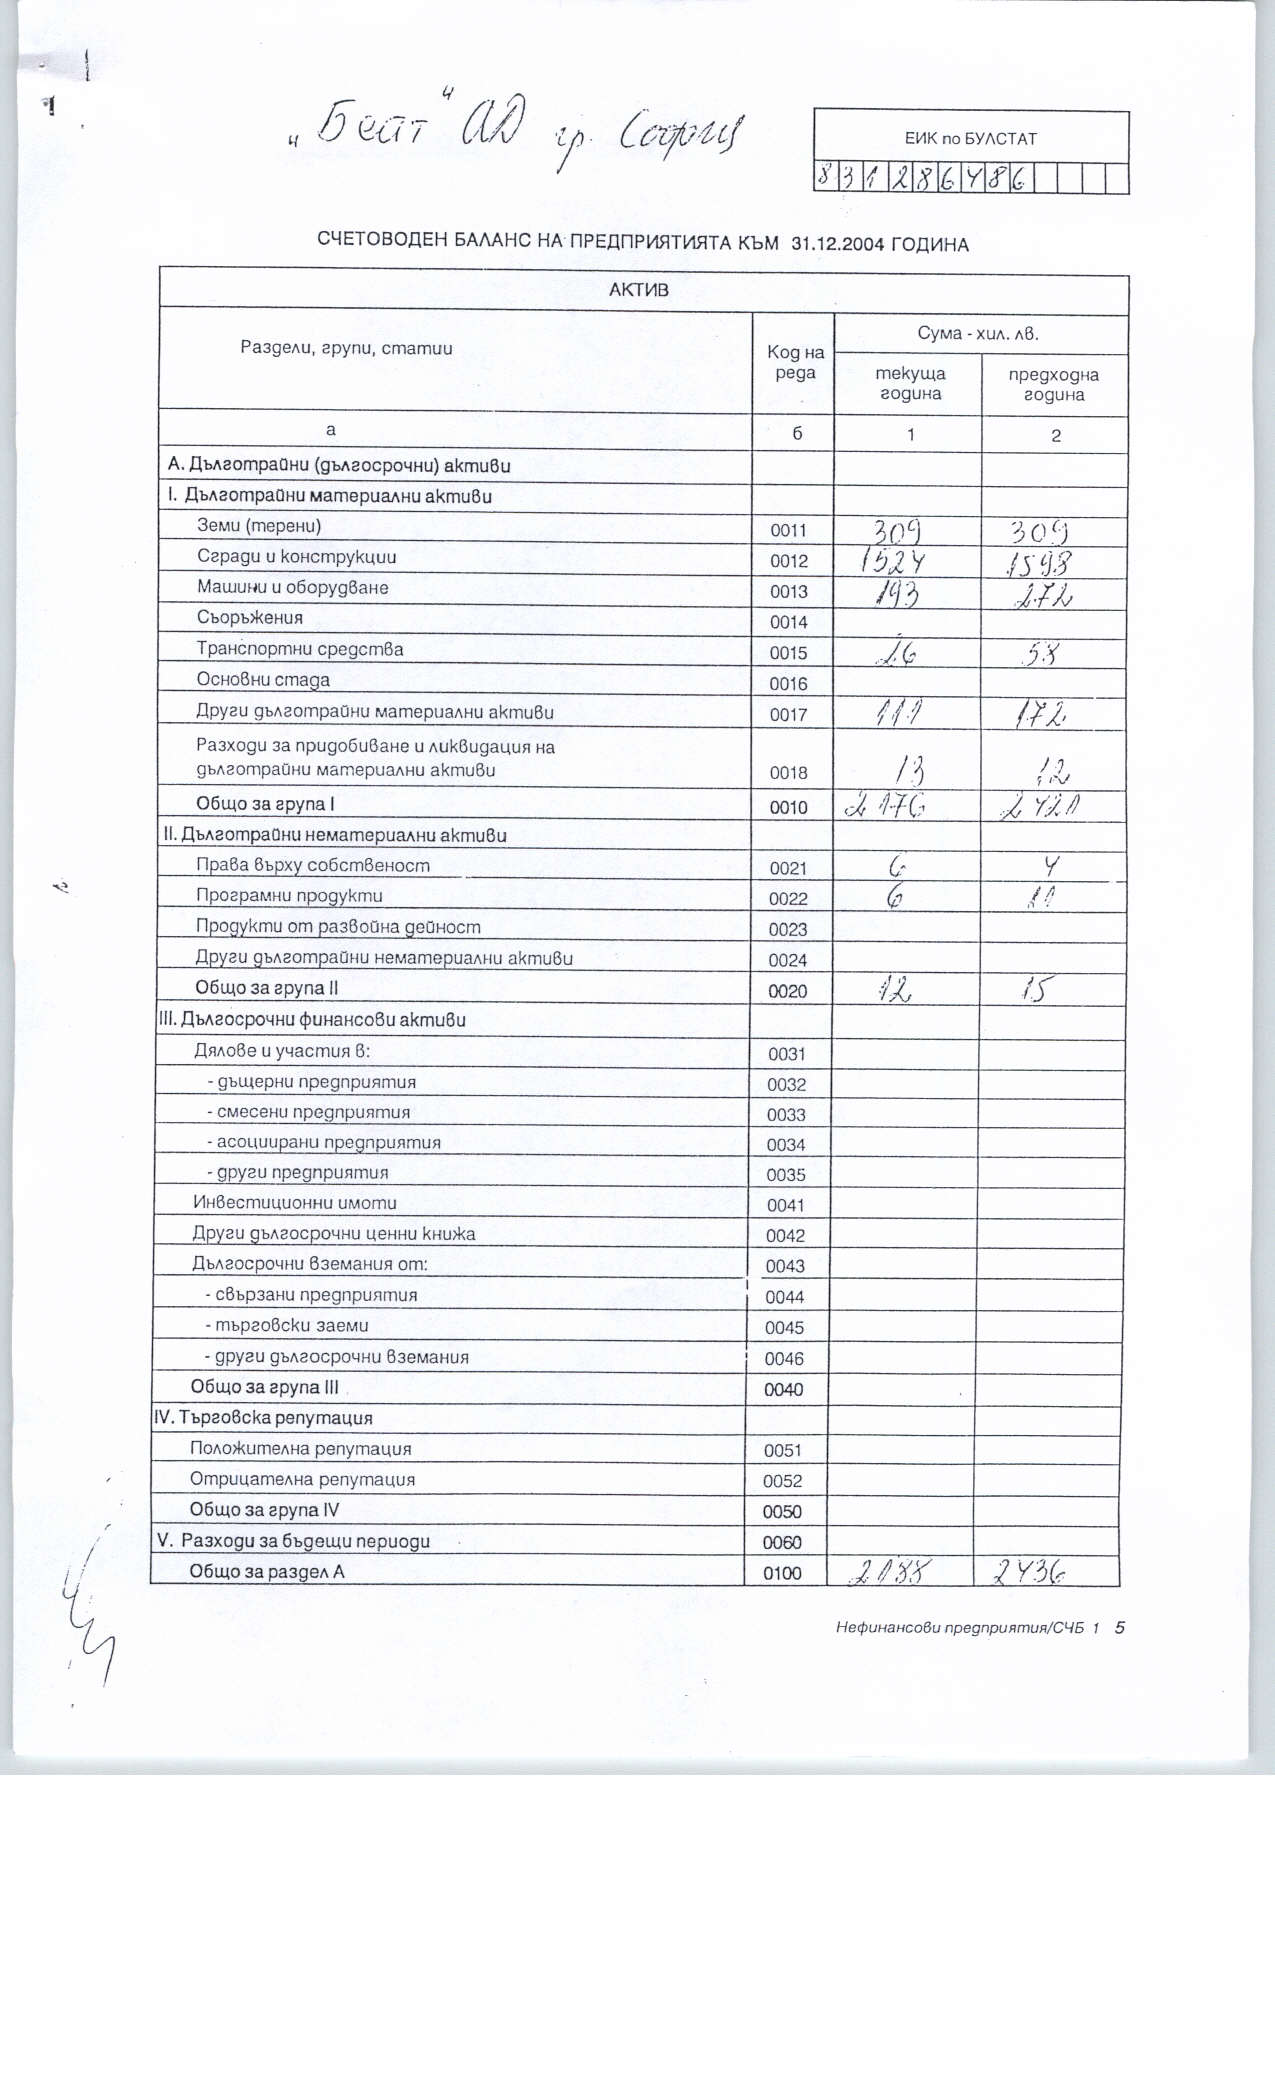 „Беат“ АД гр. София
ЕИК по БУЛСТАТ
831286486
СЧЕТОВОДЕН БАЛАНС НА ПРЕДПРИЯТИЯТА КЪМ 31.12.2004 ГОДИНА
АКТИВ
Раздели, групи, статии
Код на реда
Сума - хил. лв.
текуща година
предходна година
а б 1 2
А. Дълготрайни (дългосрочни) активи
I. Дълготрайни материални активи
Земи (терени) 0011 309 309
Сгради и конструкции 0012 1524 1598
Машини и оборудване 0013 193 272
Съоръжения 0014
Транспортни средства 0015 26 58
Основни стада 0016
Други дълготрайни материални активи 0017 111 172
Разходи за придобиване и ликвидация на
дълготрайни материални активи 0018 13 12
Общо за група I 0010 2 176 2 421
II. Дълготрайни нематериални активи
Права върху собственост 0021 6 4
Програмни продукти 0022 6 11
Продукти от развойна дейност 0023
Други дълготрайни нематериални активи 0024
Общо за група II 0020 12 15
III. Дългосрочни финансови активи
Дялове и участия в: 0031
- дъщерни предприятия 0032
- смесени предприятия 0033
- асоциирани предприятия 0034
- други предприятия 0035
Инвестиционни имоти 0041
Други дългосрочни ценни книжа 0042
Дългосрочни вземания от: 0043
- свързани предприятия 0044
- търговски заеми 0045
- други дългосрочни вземания 0046
Общо за група III 0040
IV. Търговска репутация
Положителна репутация 0051
Отрицателна репутация 0052
Общо за група IV 0050
V. Разходи за бъдещи периоди 0060
Общо за раздел А 0100 2188 2436
Нефинансови предприятия/СЧБ 1 5